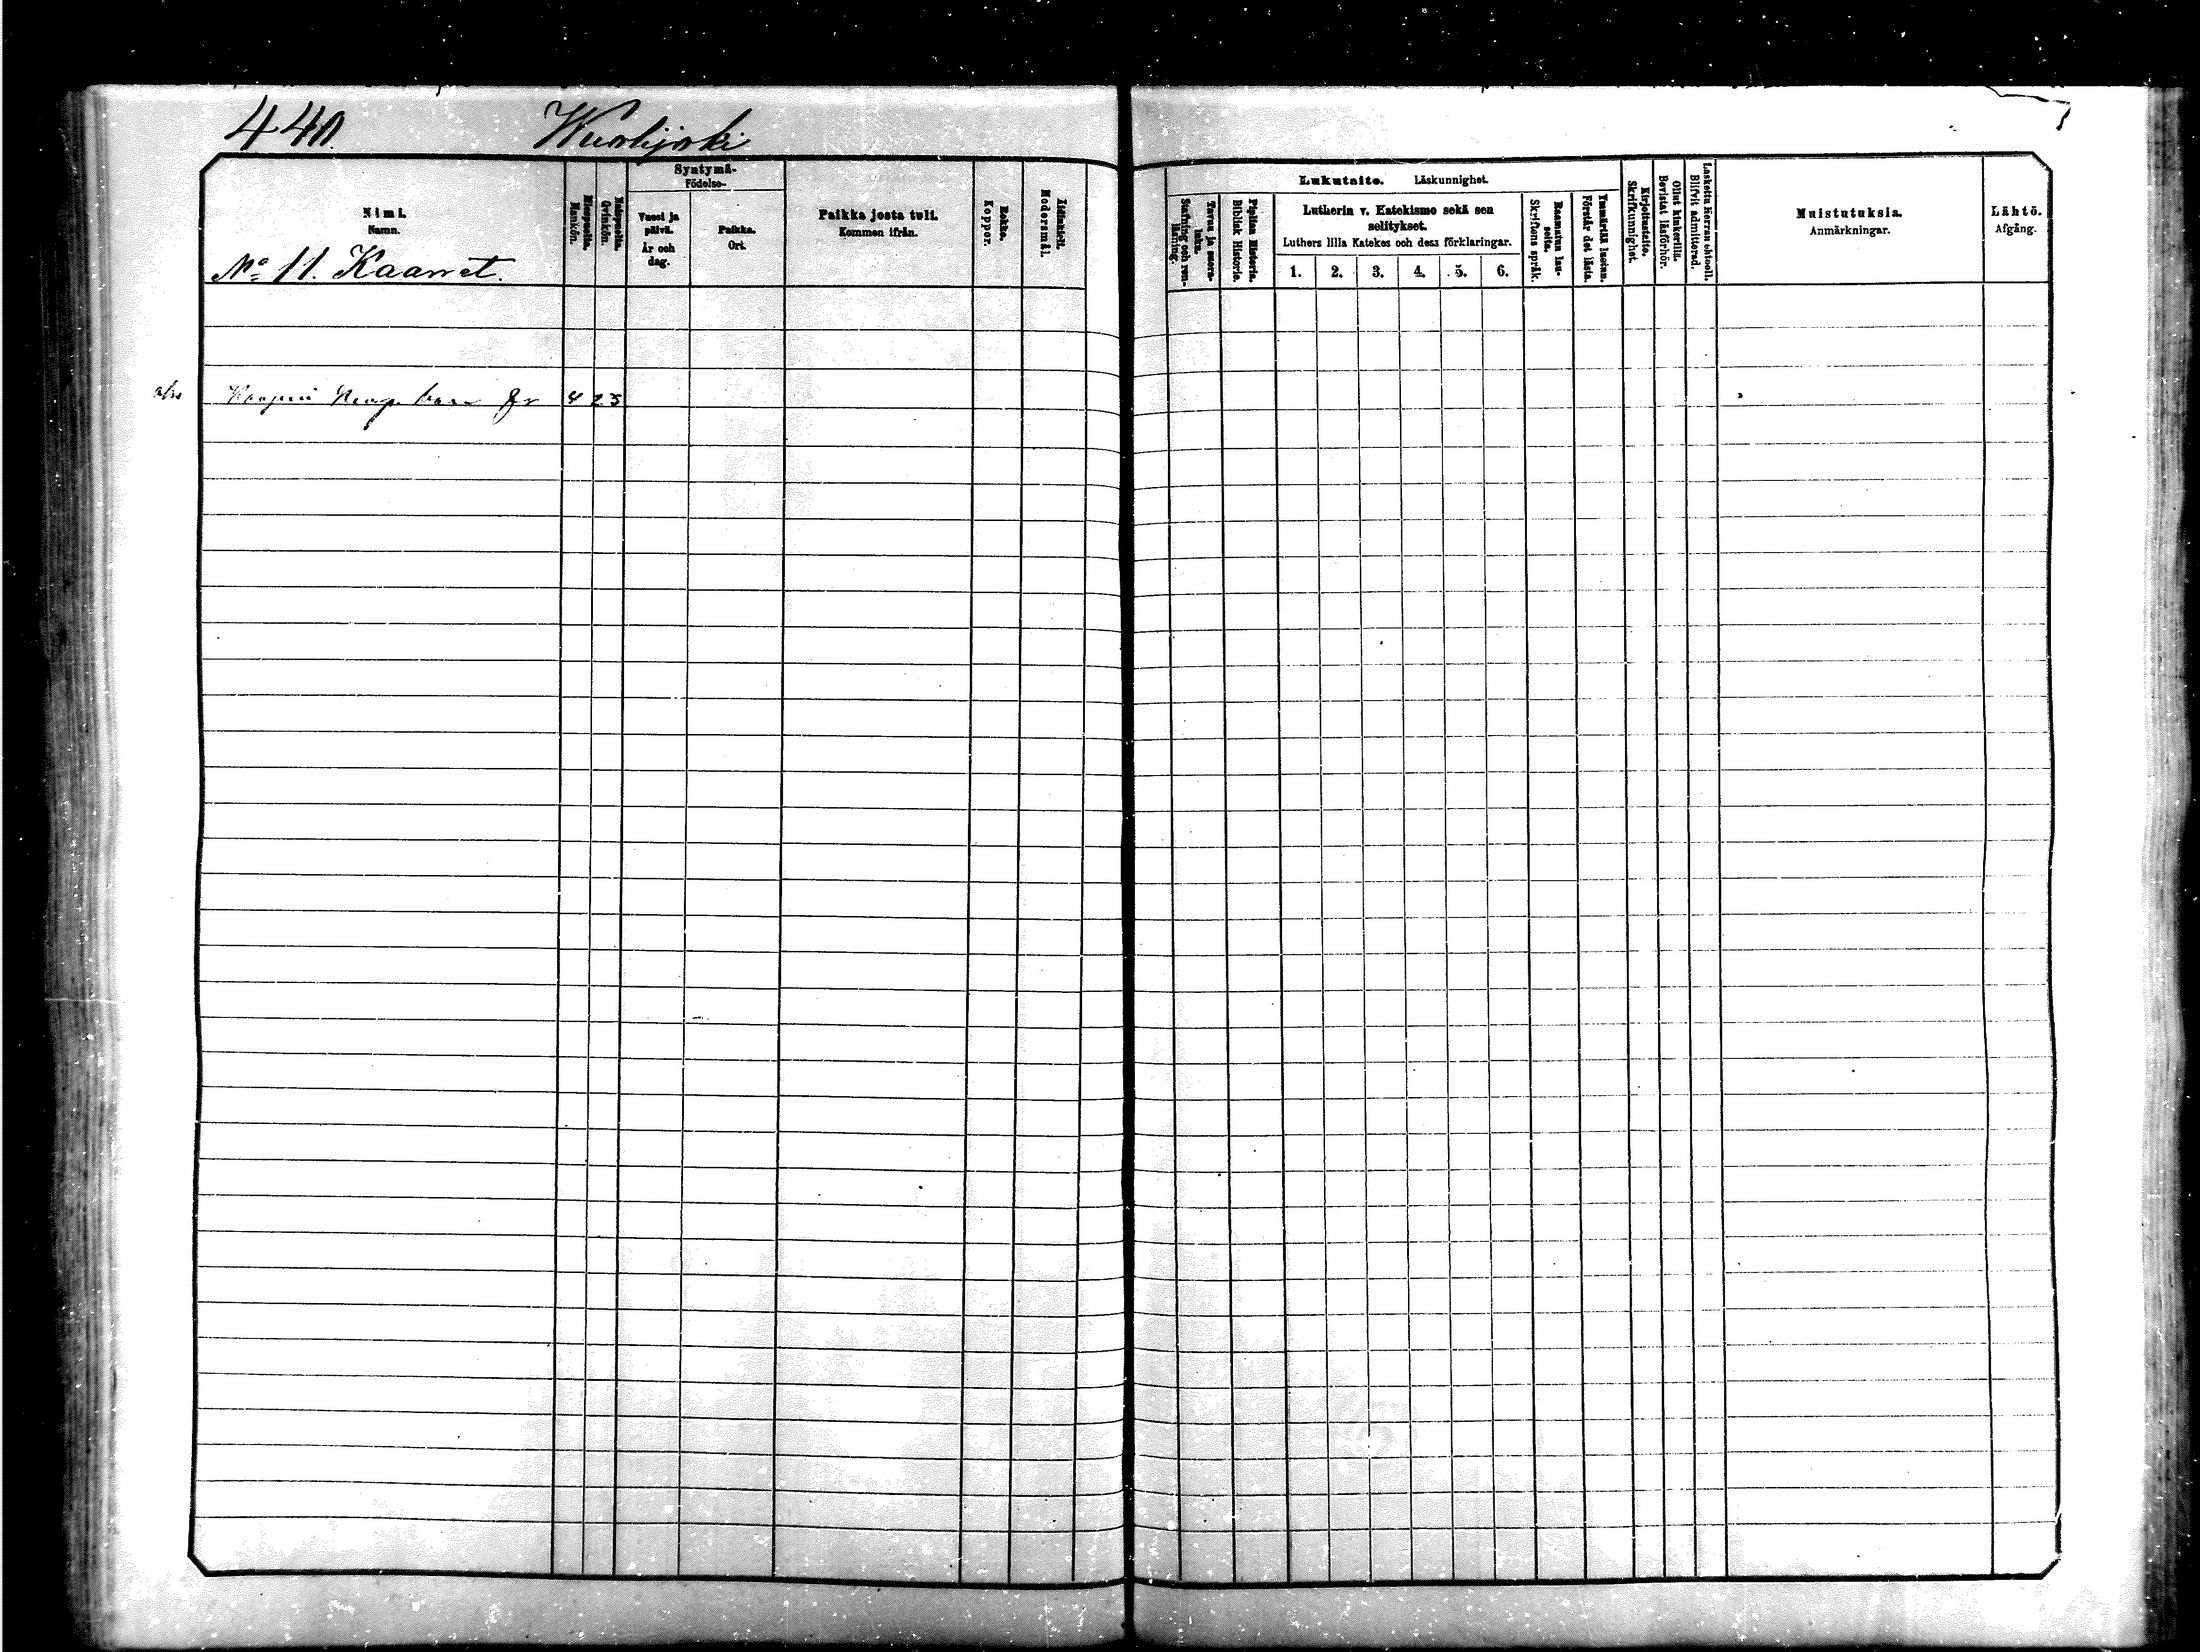 440. Wuorijoki
Syntymä-
Födelse-
Nimi.
Namn.
Miespuolia.
Mankön.
Naispuolia.
Qvinkön.
Vuosi ja päivä.
År och dag.
Paikka.
Ort.
Paikka josta tuli.
Kommen ifrån.
Rokko.
Koppor.
Äidinkieli.
Modersmål.
No 11. Kaannet.
423
Lukutaito. Läskunnighet.
Tavuu ja suora-luku.
Stafning och ren-läsning.
Piplian Historia.
Biblisk Historia.
Lutherin v. Katekismo sekä sen
selitykset.
Luthers lilla Katekes och dess förklaringar.
1. 2. 3. 4. 5. 6.
Raamatun lau-seita.
Skriftens språk.
Ymmärtää luetun.
Förstår det lästa.
Kirjoitustaito.
Skrifkunnighet.
Ollut kinkerillä.
Bevistat läsförhör.
Laskettu Herran ehtooll.
Blifvit admitterad.
Muistutuksia.
Anmärkningar.
Lähtö.
Afgång.